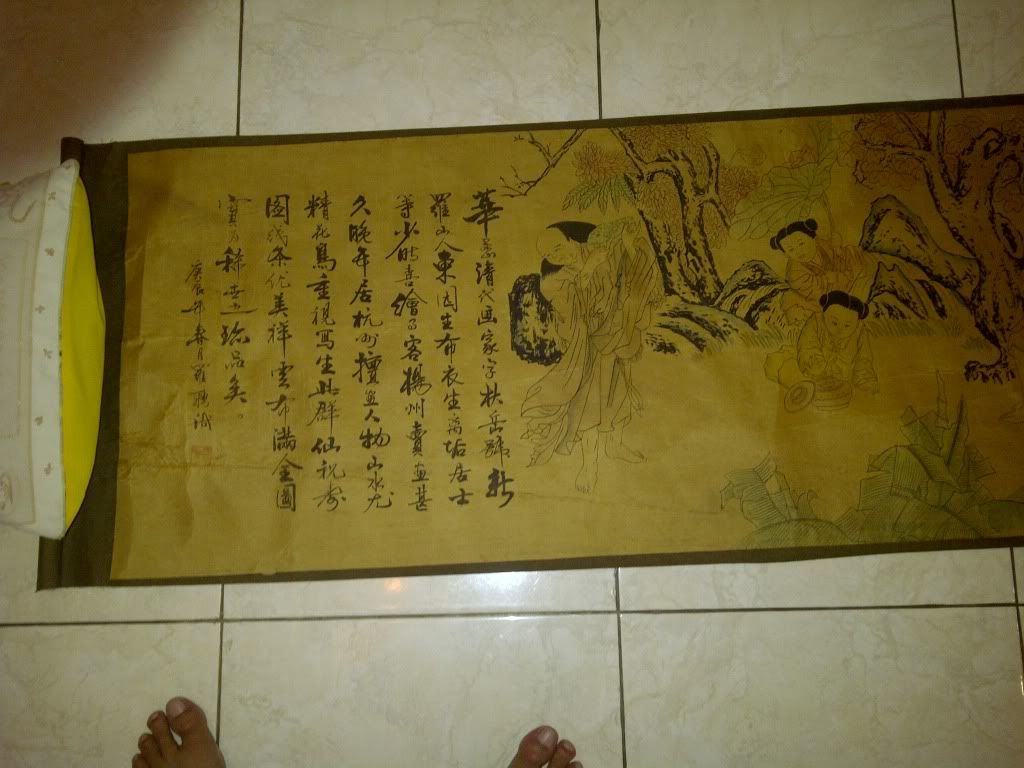 華嵒清代画家字秋岳號新
羅山人東园生布衣生离垢居士
等少时喜繪画客楊州賣画甚
久晚年居杭州擅画人物山水尤
精花鳥重視寫生此群仙祝寿
图 优美祥雲布滿全圖
實乃稀世珍品矣。
庚辰年春月羅聘識